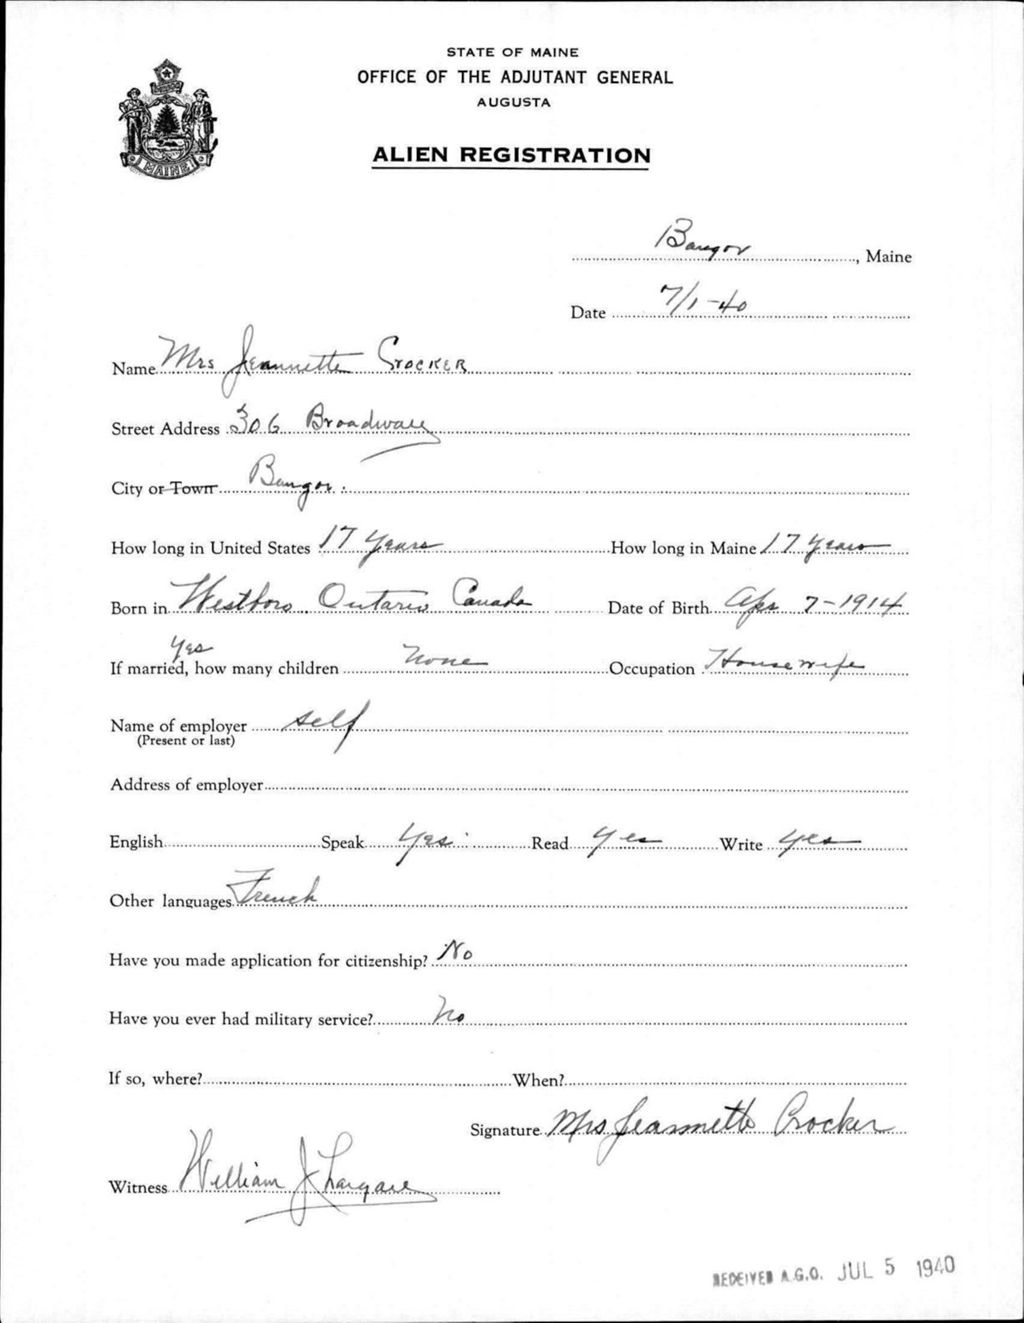 STATE OF MAINE
OFFICE OF THE ADJUTANT GENERAL
AUGUSTA
MAINE
ALIEN REGISTRATION
Bangor, Maine
Date 7/1-40
Name Mrs Jeannette Crocker
Street Address 306 Broadway
City or Town Bangor.
How long in United States 17 Years How long in Maine 17 Years
Born in Westboro, Ontario Canada Date of Birth Apr 7-1914
Yes
If married, how many children None Occupation Housewife
Name of employer self
(Present or last)
Address of employer
English Speak Yes. Read Yes Write Yes
Other languages French
Have you made application for citizenship? No
Have you ever had military service? No
If so, where? When?
Signature Mrs Jeannette Crocker
Witness William J
RECEIVED A.G.O. JUL 5 1940